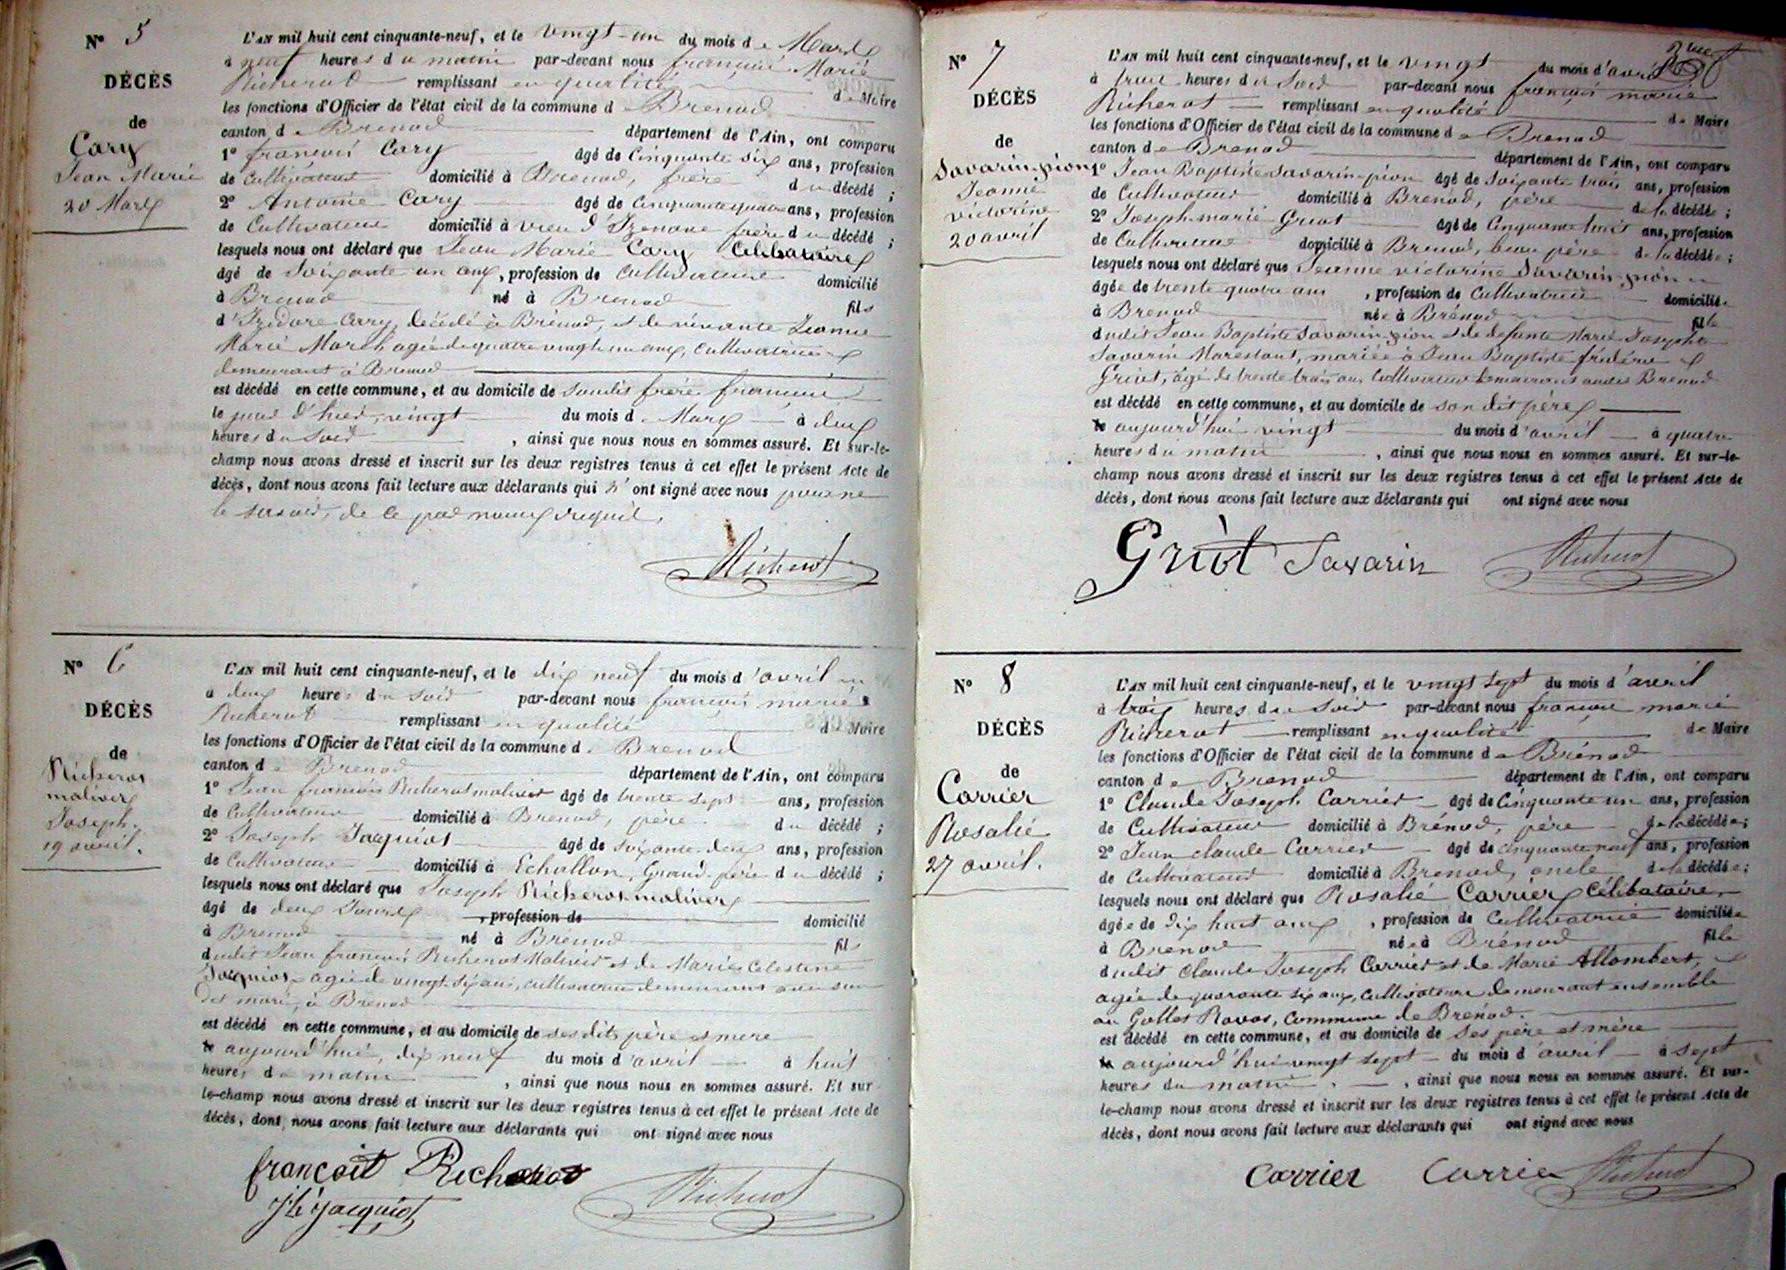 N° 5
DÉCÈS
de
Cary
Jean Marie
20 Mars
L'AN mil huit cent cinquante-neuf, et le vingt-un du mois de Mars
à neuf heures du matin par-devant nous françois Marie
Richerot remplissant en qualité de Maire
les fonctions d'Officier de l'état civil de la commune de Brenod
canton de Brenod département de l'Ain, ont comparu
1° françois Cary âgé de Cinquante six ans, profession
de Cultivateur domicilié à Brenod, frère du décédé ;
2° Antoine Cary âgé de Cinquante quatre ans, profession
de Cultivateur domicilié à vieu d'Izenave frère du décédé ;
lesquels nous ont déclaré que Jean Marie Cary Célibataire
âgé de Soixante un ans, profession de Cultivateur domicilié
à Brenod né à Brenod fils
d'Isidore Cary, décédé à Brénod, et de vivante Jeanne
Marie agée de quatre vingt un ans, Cultivatrice
demeurant à Brenod
est décédé en cette commune, et au domicile de sondit frère françois
le jour d'hier, vingt du mois de Mars à deux
heures du Soir, ainsi que nous nous en sommes assuré. Et sur-le-
champ nous avons dressé et inscrit sur les deux registres tenus à cet effet le présent Acte de
décès, dont nous avons fait lecture aux déclarants qui n'ont signé avec nous pour ne
le savoir, de ce par nous requis.
Richerot
N° 6
DÉCÈS
de
Richerot
maliver
Joseph
19 avril.
L'AN mil huit cent cinquante-neuf, et le dix neuf du mois d'avril
à deux heures du soir par-devant nous françois marie
Richerot remplissant en qualité de Maire
les fonctions d'Officier de l'état civil de la commune de Brenod
canton de Brenod département de l'Ain, ont comparu
1° Jean françois Richerot maliver âgé de trente sept ans, profession
de Cultivateur domicilié à Brenod, père du décédé ;
2° Joseph Jacquiot âgé de soixante deux ans, profession
de Cultivateur domicilié à Echallon, Grand-père du décédé ;
lesquels nous ont déclaré que Joseph Richerot maliver
âgé de deux Jours, profession de domicilié
à Brenod né à Brénod fils
dudit Jean françois Richerot Maliver et de Marie Celestine
Jacquiot agée de vingt six ans, cultivatrice demeurant avec son
dit mari, à Brenod
est décédé en cette commune, et au domicile de ses dits père et mere
le aujourd'hui, dix neuf du mois d'avril à huit
heures du matin, ainsi que nous nous en sommes assuré. Et sur
le-champ nous avons dressé et inscrit sur les deux registres tenus à cet effet le présent Acte de
décès, dont nous avons fait lecture aux déclarants qui ont signé avec nous
françois Richerot
Jh Jacquiot Richerot
N° 7
DÉCÈS
de
Savarin-pion
Jeanne
victorine
20 avril
L'AN mil huit cent cinquante-neuf, et le vingt du mois d'avril
à trois heures du Soir par-devant nous françois marie
Richerot remplissant en qualité de Maire
les fonctions d'Officier de l'état civil de la commune de Brenod
canton de Brenod département de l'Ain, ont comparu
1° Jean Baptiste Savarin-pion âgé de Soixante trois ans, profession
de Cultivateur domicilié à Brenod, père de la décédée ;
2° Joseph marie Griot âgé de Cinquante huit ans, profession
de Cultivateur domicilié à Brenod, beau père de la décédée ;
lesquels nous ont déclaré que Jeanne victorine Savarin-pion
âgée de trente quatre ans, profession de Cultivatrice domiciliée
à Brenod née à Brénod fille
dudit Jean Baptiste Savarin-pion et de défunte Marie Josephte
Savarin Marestant, mariée à Jean Baptiste fréderic
Griot, âgé de trente trois ans Cultivateur demeurant audit Brenod
est décédé en cette commune, et au domicile de son dit père
le aujourd'hui vingt du mois d'avril à quatre
heures du matin, ainsi que nous nous en sommes assuré. Et sur-le-
champ nous avons dressé et inscrit sur les deux registres tenus à cet effet le présent Acte de
décès, dont nous avons fait lecture aux déclarants qui ont signé avec nous
Griot Savarin Richerot
N° 8
DÉCÈS
de
Carrier
Rosalie
27 avril.
L'AN mil huit cent cinquante-neuf, et le vingt sept du mois d'avril
à trois heures du soir par-devant nous françois marie
Richerot remplissant en qualité de Maire
les fonctions d'Officier de l'état civil de la commune de Brénod
canton de Brenod département de l'Ain, ont comparu
1° Claude Joseph Carrier âgé de Cinquante un ans, profession
de Cultivateur domicilié à Brénod, père de la décédée ;
2° Jean claude Carrier âgé de cinquante neuf ans, profession
de Cultivateur domicilié à Brenod, oncle de la décédée ;
lesquels nous ont déclaré que Rosalie Carrier Célibataire
âgée de Dix huit ans, profession de Cultivatrice domiciliée
à Brenod née à Brénod fille
dudit Claude Joseph Carrier et de Marie Allombert,
agée de quarante six ans, Cultivateurs demeurant ensemble
au Gollet Ravat, commune de Brenod.
est décédé en cette commune, et au domicile de Ses père et mère
le aujourd'hui vingt sept du mois d'avril à sept
heures du matin, ainsi que nous nous en sommes assuré. Et sur-
le-champ nous avons dressé et inscrit sur les deux registres tenus à cet effet le présent Acte de
décès, dont nous avons fait lecture aux déclarants qui ont signé avec nous
Carrier Carrier Richerot